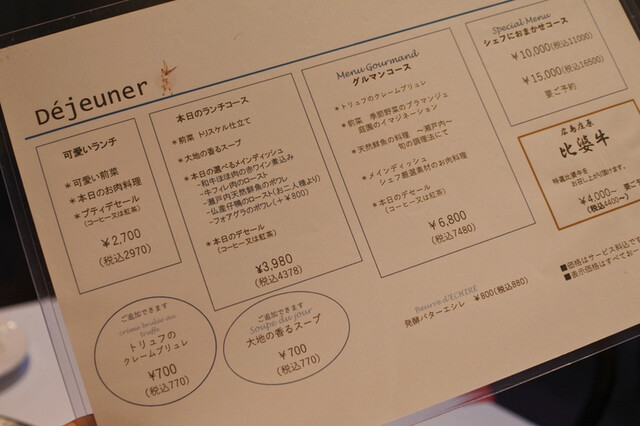 Déjeuner
可愛いランチ
＊可愛い前菜
＊本日のお肉料理
＊プティデセール
(コーヒー又は紅茶)
￥2,700
(税込2970)
本日のランチコース
＊前菜 トリスケル仕立て
＊大地の香るスープ
＊本日の選べるメインディッシュ
-和牛ほほ肉の赤ワイン煮込み
-牛フィレ肉のロースト
-瀬戸内天然鮮魚のポワレ
-仏産仔鴨のロースト(お二人様より)
-フォアグラのポワレ(+￥800)
＊本日のデセール
(コーヒー又は紅茶)
¥3,980
(税込4378)
Menu Gourmand
グルマンコース
＊トリュフのクレームブリュレ
＊前菜 季節野菜のブラマンジェ
庭園のイマジネーション
＊天然鮮魚の料理 ～瀬戸内～
旬の調理法にて
＊メインディッシュ
シェフ厳選素材のお肉料理
＊本日のデセール
(コーヒー又は紅茶)
￥6,800
(税込7480)
Special Menu
シェフにおまかせコース
￥10,000(税込11000)
￥15,000(税込16500)
要ご予約
広島庄原
比婆牛
特選比婆牛を
お召し上がり頂けます。
￥4,000～ 要ご
(税込4400～)
■価格はサービス料込です
■表示価格はすべてお一
ご追加できます
Crème brûlée au
truffe
トリュフの
クレームブリュレ
￥700
(税込770)
ご追加できます
Soupe du jour
大地の香るスープ
￥700
(税込770)
Beurre d'ECHIRE
発酵バターエシレ ￥800(税込880)